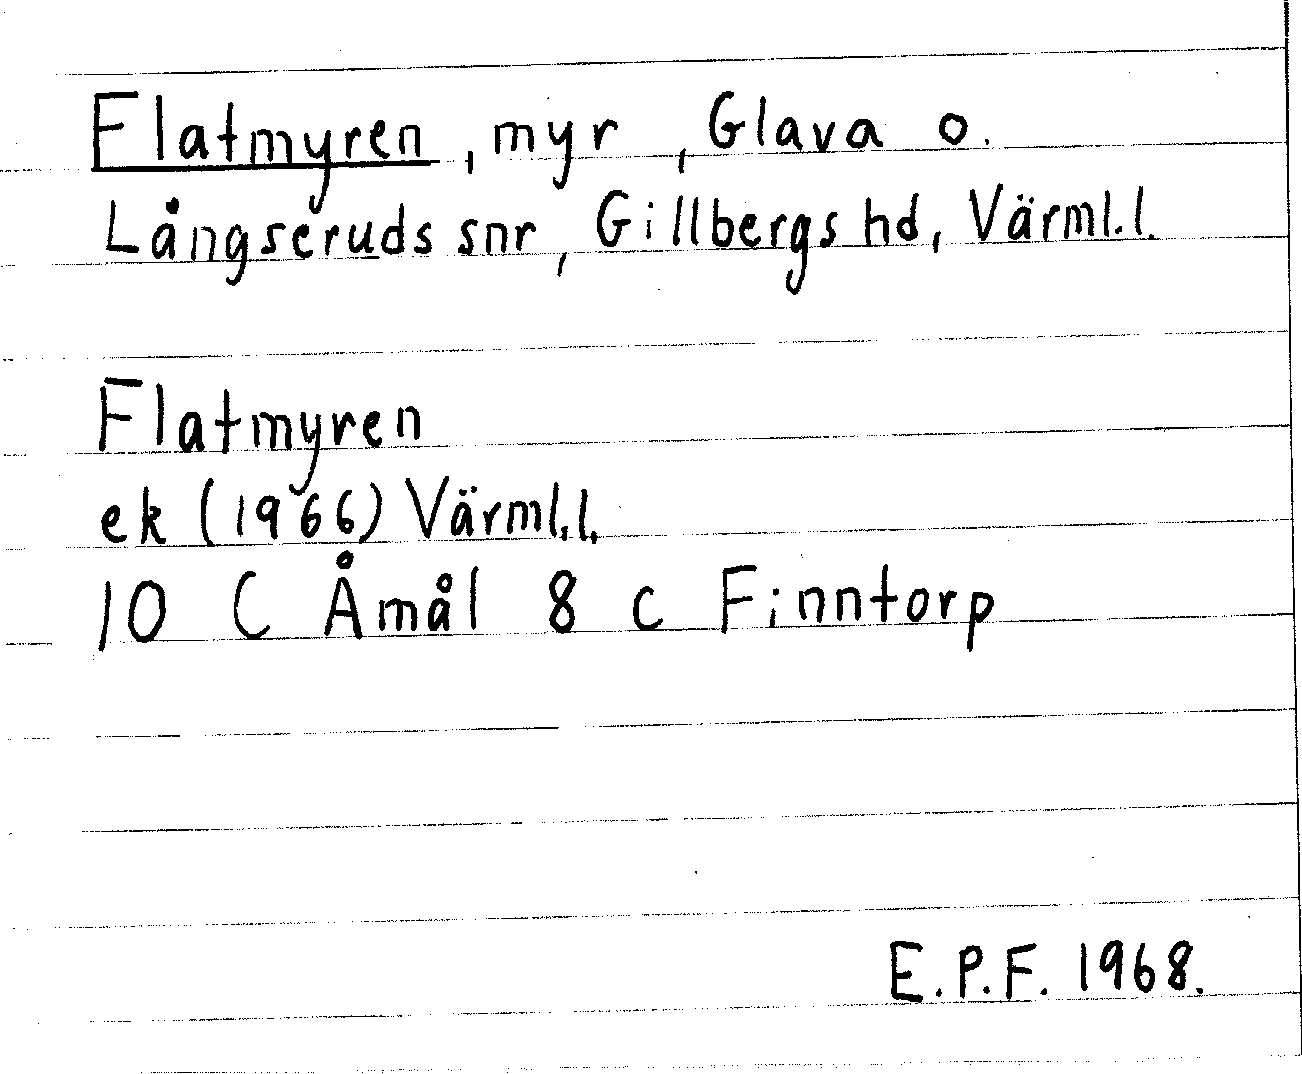 Flatmyren, myr, Glava o.
Långseruds snr, Gillbergs hd, Värml.l.
Flatmyren
ek (1966) Värml.l.
10 C Åmål 8 c Finntorp
E.P.F. 1968.